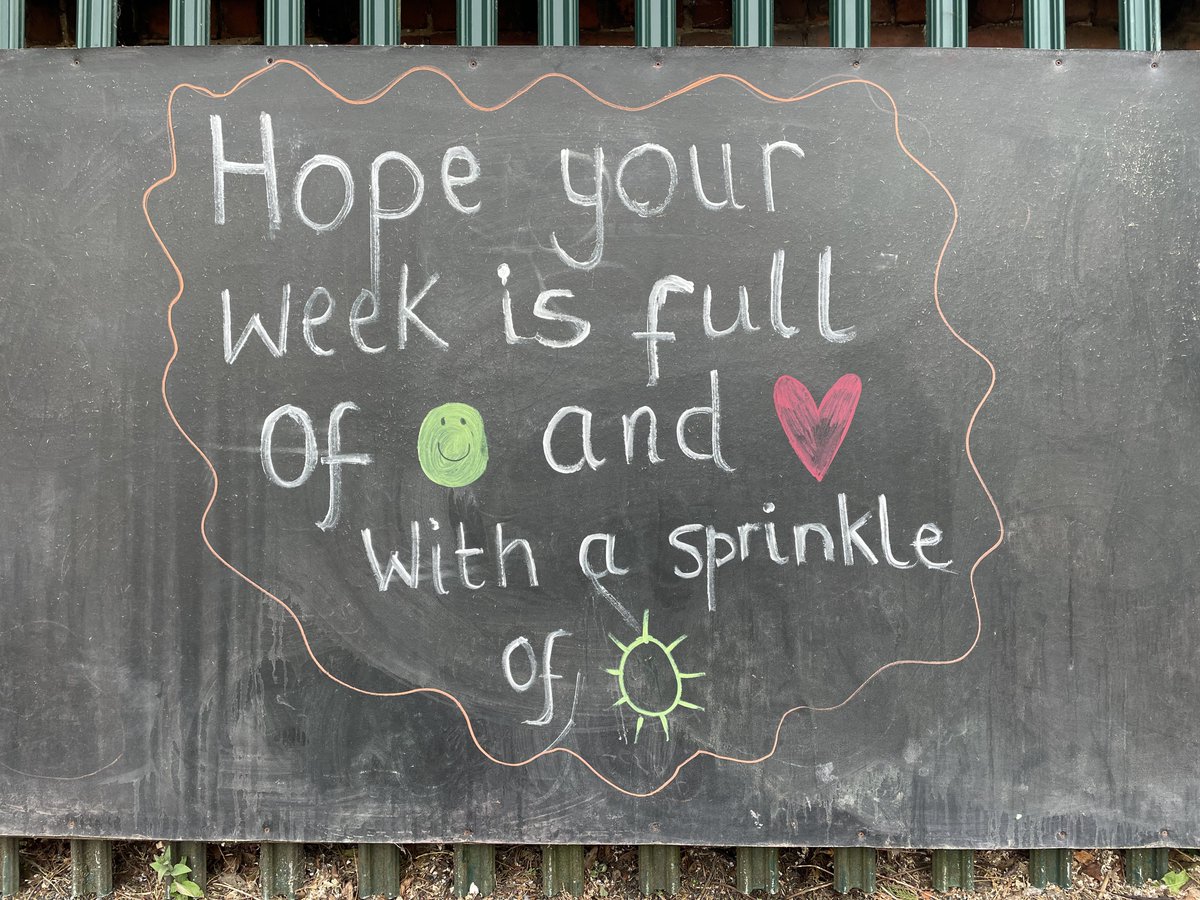 Hope your
week is full
of and
with a sprinkle
of